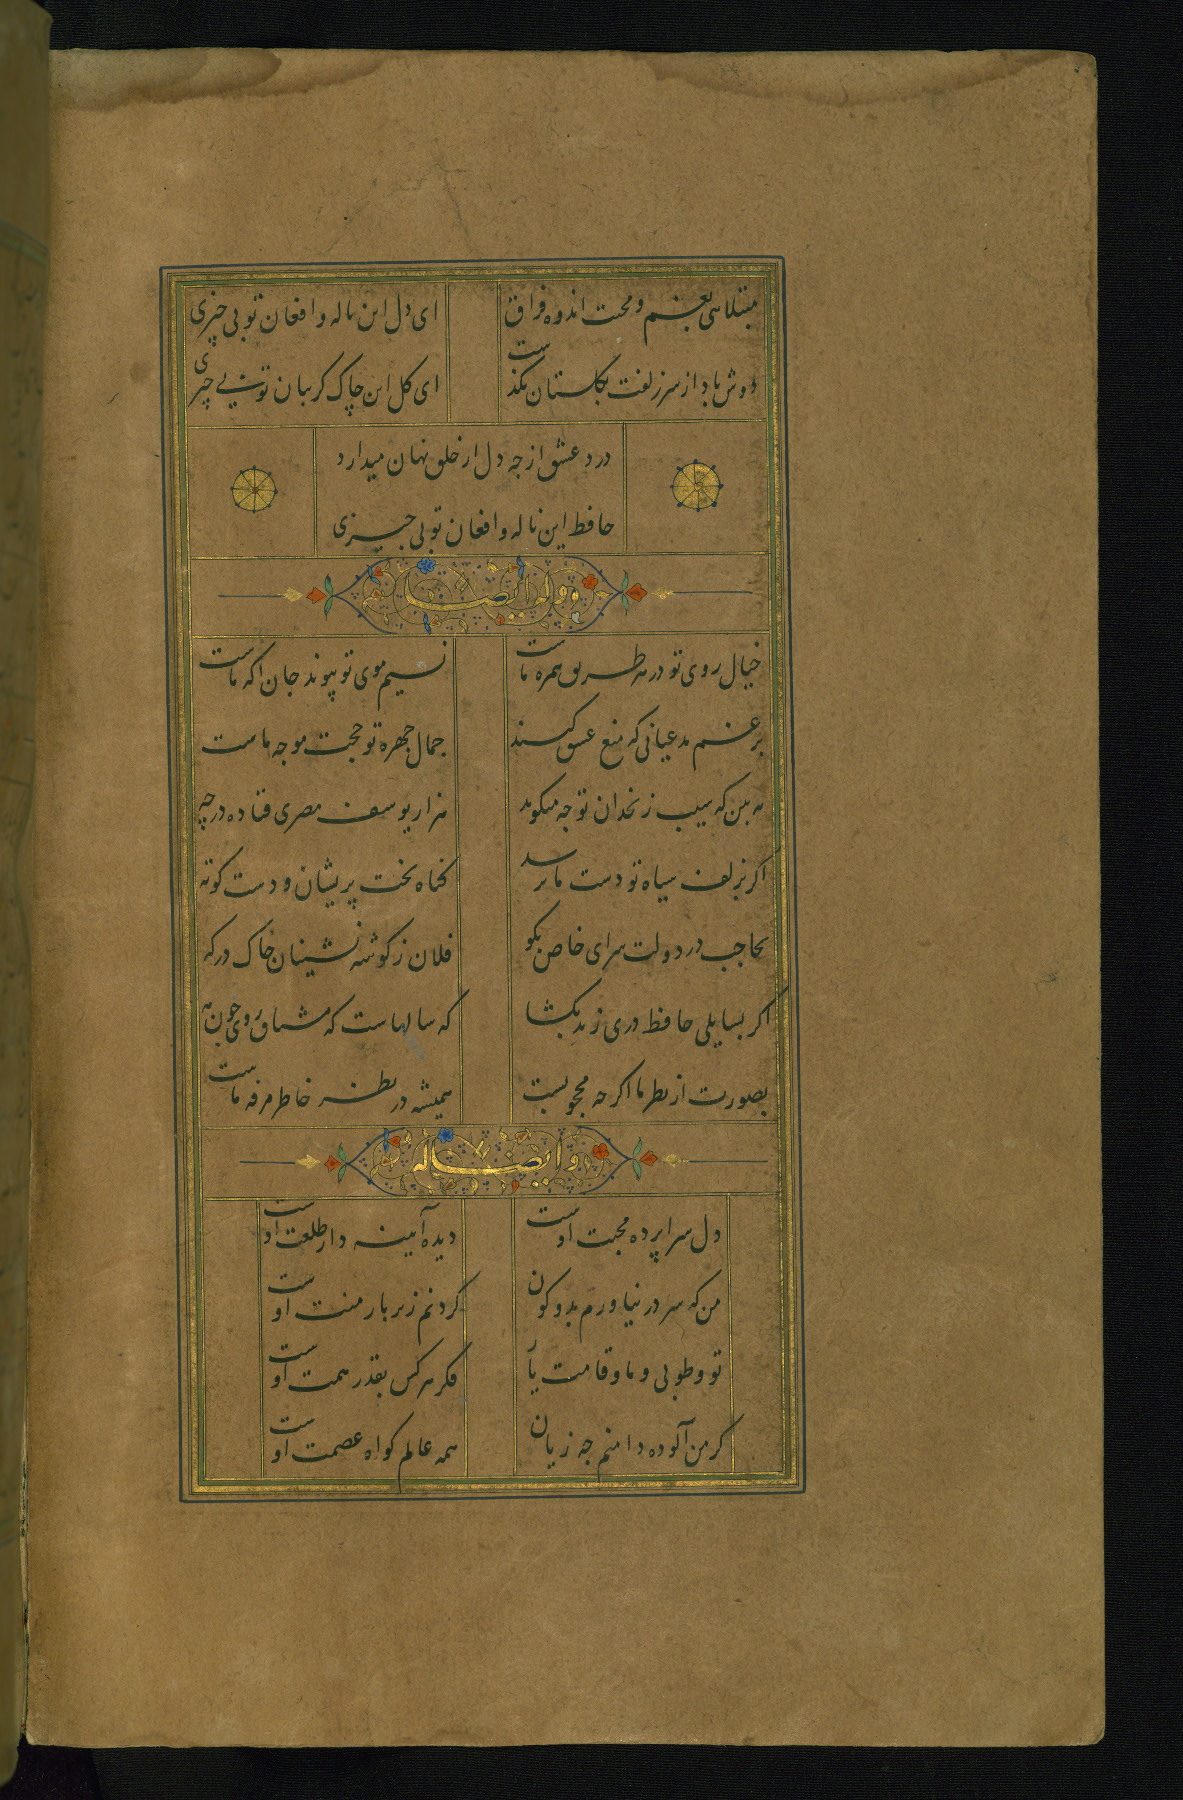 مبتلایی بغم و محنت اندوه فراق ای دل این ناله و افغان تو بی چیزی
دوش باد از سر زلفت بگلستان بگذشت ای کل این چاک کریبان تو بی چیزی
درد عشق از چه دل از خلق نهان میدارد
حافظ این ناله و افغان تو بی چیزی
وله ایضا
خیال روی تو در هر طریق همره ماست نسیم موی تو پیوند جان اکه ماست
برغم مدعیانی که منع عشق کنند جمال جهره تو حجت موجه ماست
به بین که سیب زنخدان تو جه میکوید هزار یوسف مصری فتاده در چه
اکر بزلف سیاه تو دست ما نرسد کناه بخت پریشان و دست کوته
بحاجب در دولت سرای خاص بکو فلان ز کوشه نشینان خاک درکه
اکر بسایلی حافظ دری زند بکشا که سالهاست که مشتاق روی جون مه
بصورت از نظر ما اکرجه محجوبست همیشه در نظر خاطر مرفه ماست
وایضا له
دل سراپرده محبت اوست دیده آیینه دار طلعت اوست
من که سر در نیاورم بدو کون کردنم زیر بار منت اوست
تو و طوبی و ما و قامت یار فکر هر کس بقدر همت اوست
کر من آلوده دامنم جه زیان همه عالم کواه عصمت اوست